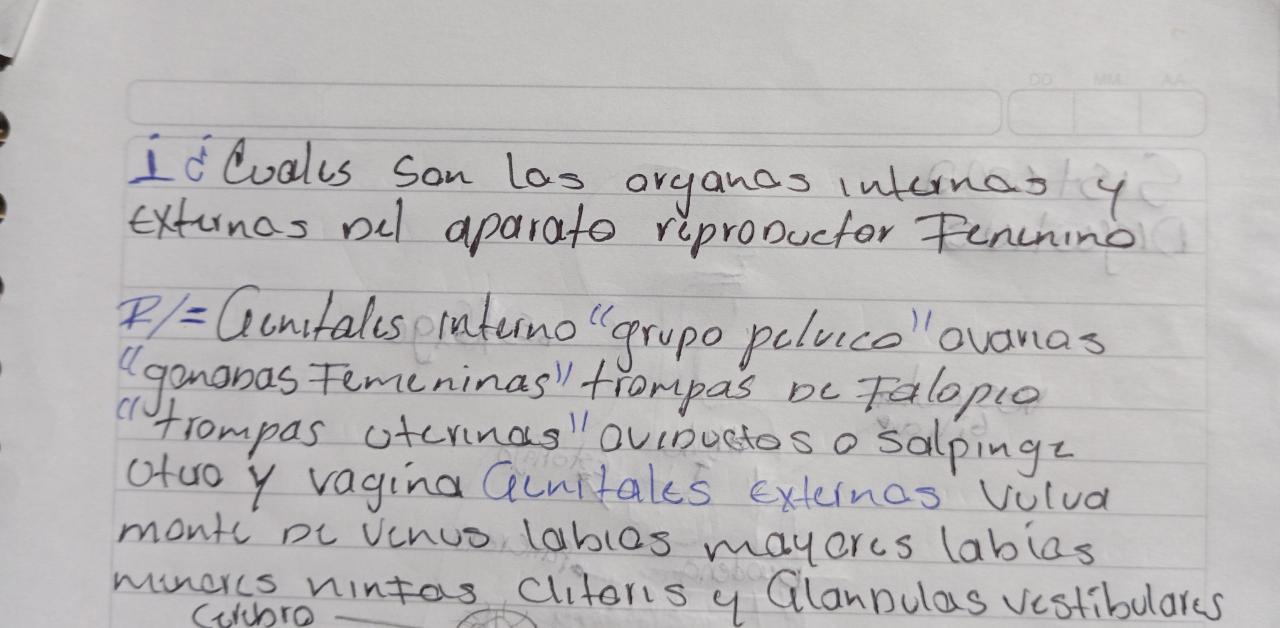 DD MM AA
1 ¿Cuales son los organos internos y
externos Del aparato reproductor Femenino
R/= Genitales interno "grupo pelvico" ovarios
"gonadas Femeninas" trompas De Falopio
"trompas uterinas" oviductos o Salpinge
Utero y vagina Genitales externos Vulva
monte De Venus labios mayores labios
minores ninfas Clitoris y Glandulas vestibulares
Cerebro